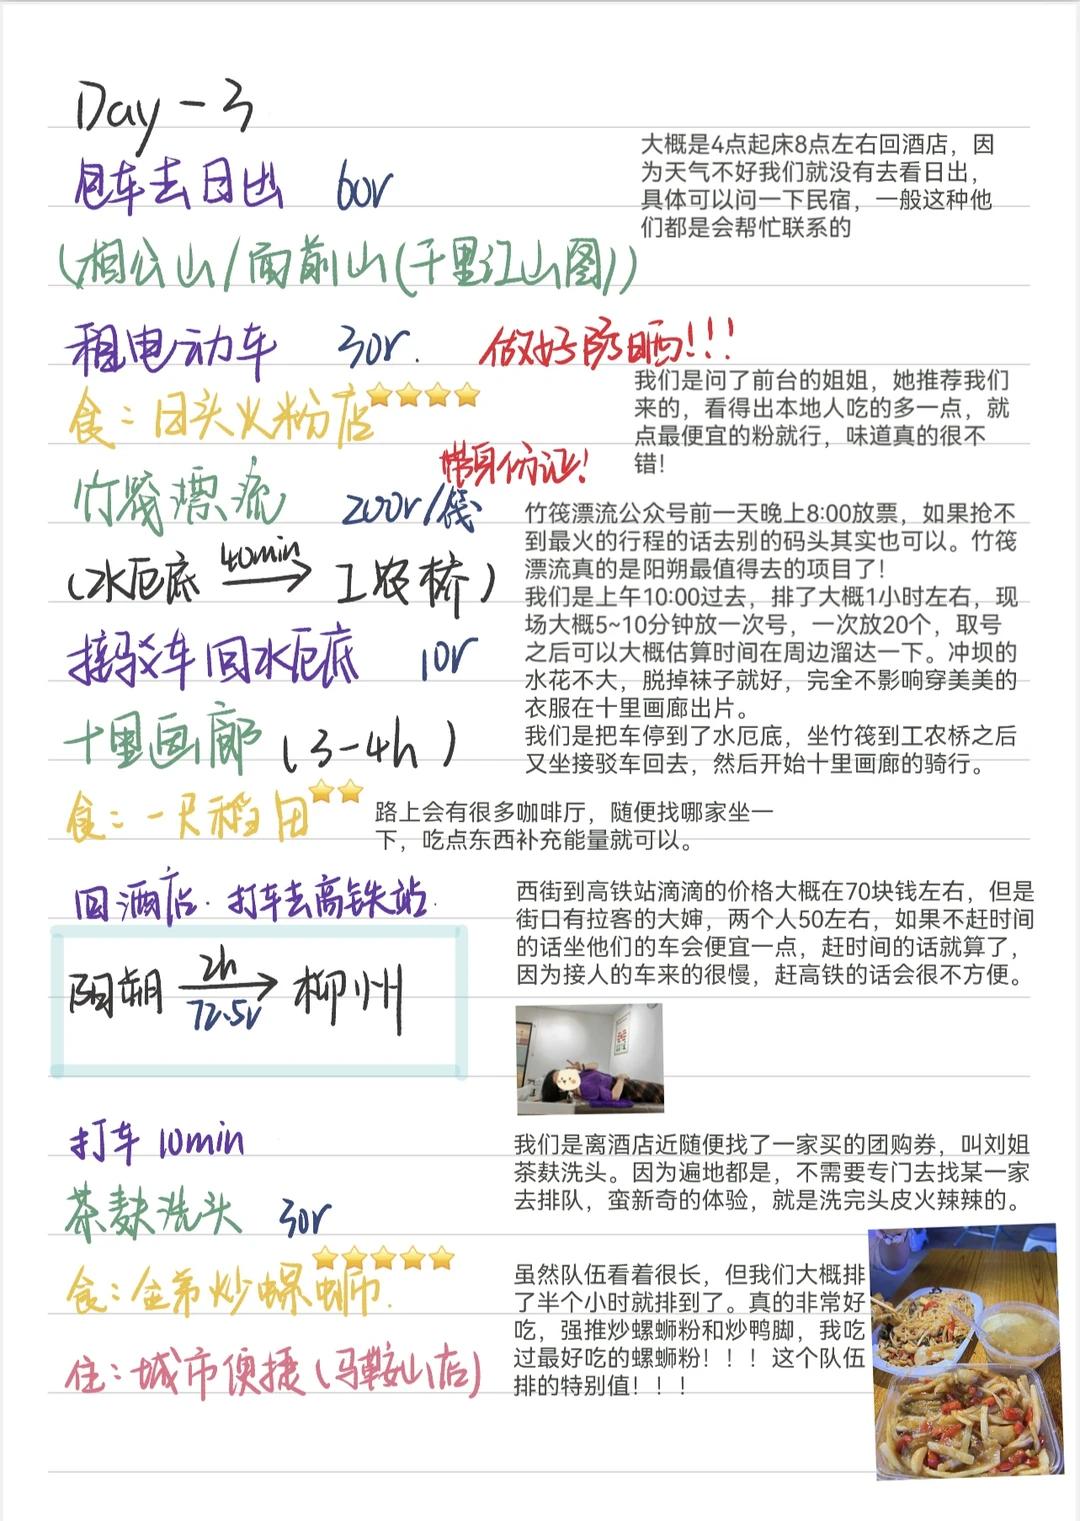 Day-3
包车去日出 60r
大概是4点起床8点左右回酒店，因
为天气不好我们就没有去看日出，
具体可以问一下民宿，一般这种他
们都是会帮忙联系的
(相公山/雨前山(千里江山图))
租电动车 30r.
做好防晒!!!
食：日头火粉店
我们是问了前台的姐姐，她推荐我们
来的，看得出本地人吃的多一点，就
点最便宜的粉就行，味道真的很不
错！
带身份证!
竹筏漂流 200r/筏
(水厄底 40min → 工农桥)
接驳车回水厄底 10r
竹筏漂流公众号前一天晚上8:00放票，如果抢不
到最火的行程的话去别的码头其实也可以。竹筏
漂流真的是阳朔最值得去的项目了！
我们是上午10:00过去，排了大概1小时左右，现
场大概5~10分钟放一次号，一次放20个，取号
之后可以大概估算时间在周边溜达一下。冲坝的
水花不大，脱掉袜子就好，完全不影响穿美美的
衣服在十里画廊出片。
我们是把车停到了水厄底，坐竹筏到工农桥之后
又坐接驳车回去，然后开始十里画廊的骑行。
十里画廊 (3-4h)
食：一只稻田
路上会有很多咖啡厅，随便找哪家坐一
下，吃点东西补充能量就可以。
回酒店·打车去高铁站.
西街到高铁站滴滴的价格大概在70块钱左右，但是
街口有拉客的大婶，两个人50左右，如果不赶时间
的话坐他们的车会便宜一点，赶时间的话就算了，
因为接人的车来的很慢，赶高铁的话会很不方便。
阳朔 2h → 柳州
72.5r
打车 10min
茶麸洗头 30r
我们是离酒店近随便找了一家买的团购券，叫刘姐
茶麸洗头。因为遍地都是，不需要专门去找某一家
去排队，蛮新奇的体验，就是洗完头皮火辣辣的。
食：金弟炒螺蛳.
虽然队伍看着很长，但我们大概排
了半个小时就排到了。真的非常好
吃，强推炒螺蛳粉和炒鸭脚，我吃
过最好吃的螺蛳粉！！！这个队伍
排的特别值！！！
住：城市便捷(马鞍山店)